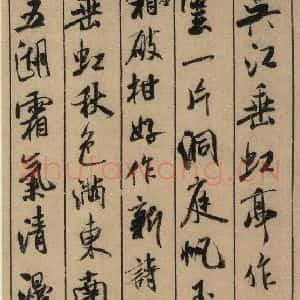 吳江垂虹亭作
雲一片洞庭帆玉
霜破柑好作新詩
垂虹秋色滿東南
五湖霜氣清漫